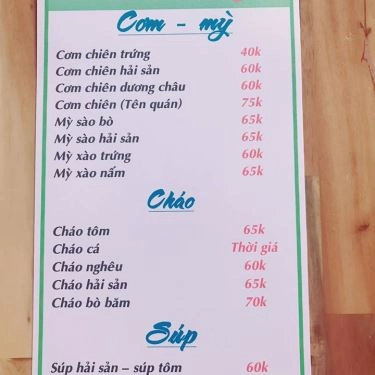 Cơm - mỳ
Cơm chiên trứng 40k
Cơm chiên hải sản 60k
Cơm chiên dương châu 60k
Cơm chiên (Tên quán) 75k
Mỳ sào bò 65k
Mỳ sào hải sản 65k
Mỳ xào trứng 60k
Mỳ xào nấm 65k
Cháo
Cháo tôm 65k
Cháo cá Thời giá
Cháo nghêu 60k
Cháo hải sản 65k
Cháo bò băm 70k
Súp
Súp hải sản – súp tôm 60k